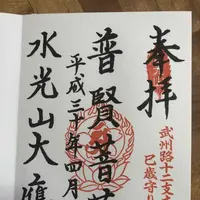 奉拝
武州路十二支
巳歳守り
普賢菩
平成三十年四月
水光山大應